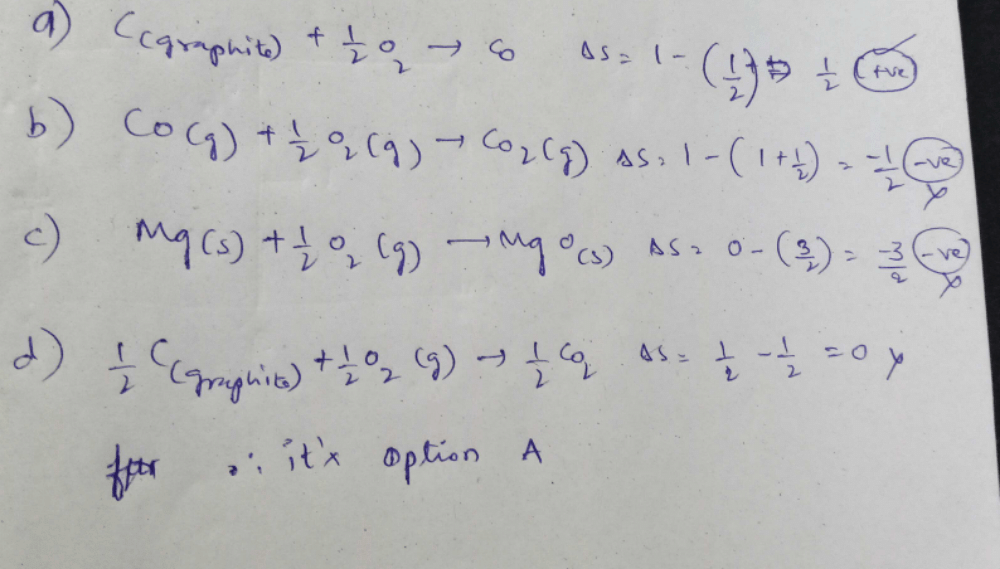 a) C(graphite) + 1/2 O2 → CO ΔS = 1 - (1/2) = 1/2 +ve
b) CO(g) + 1/2 O2(g) → CO2(g) ΔS = 1 - (1 + 1/2) = -1/2 -ve x
c) Mg(s) + 1/2 O2(g) → MgO(s) ΔS = 0 - (3/2) = -3/2 -ve x
d) 1/2 C(graphite) + 1/2 O2(g) → 1/2 CO2 ΔS = 1/2 - 1/2 = 0 x
∴ it's option A